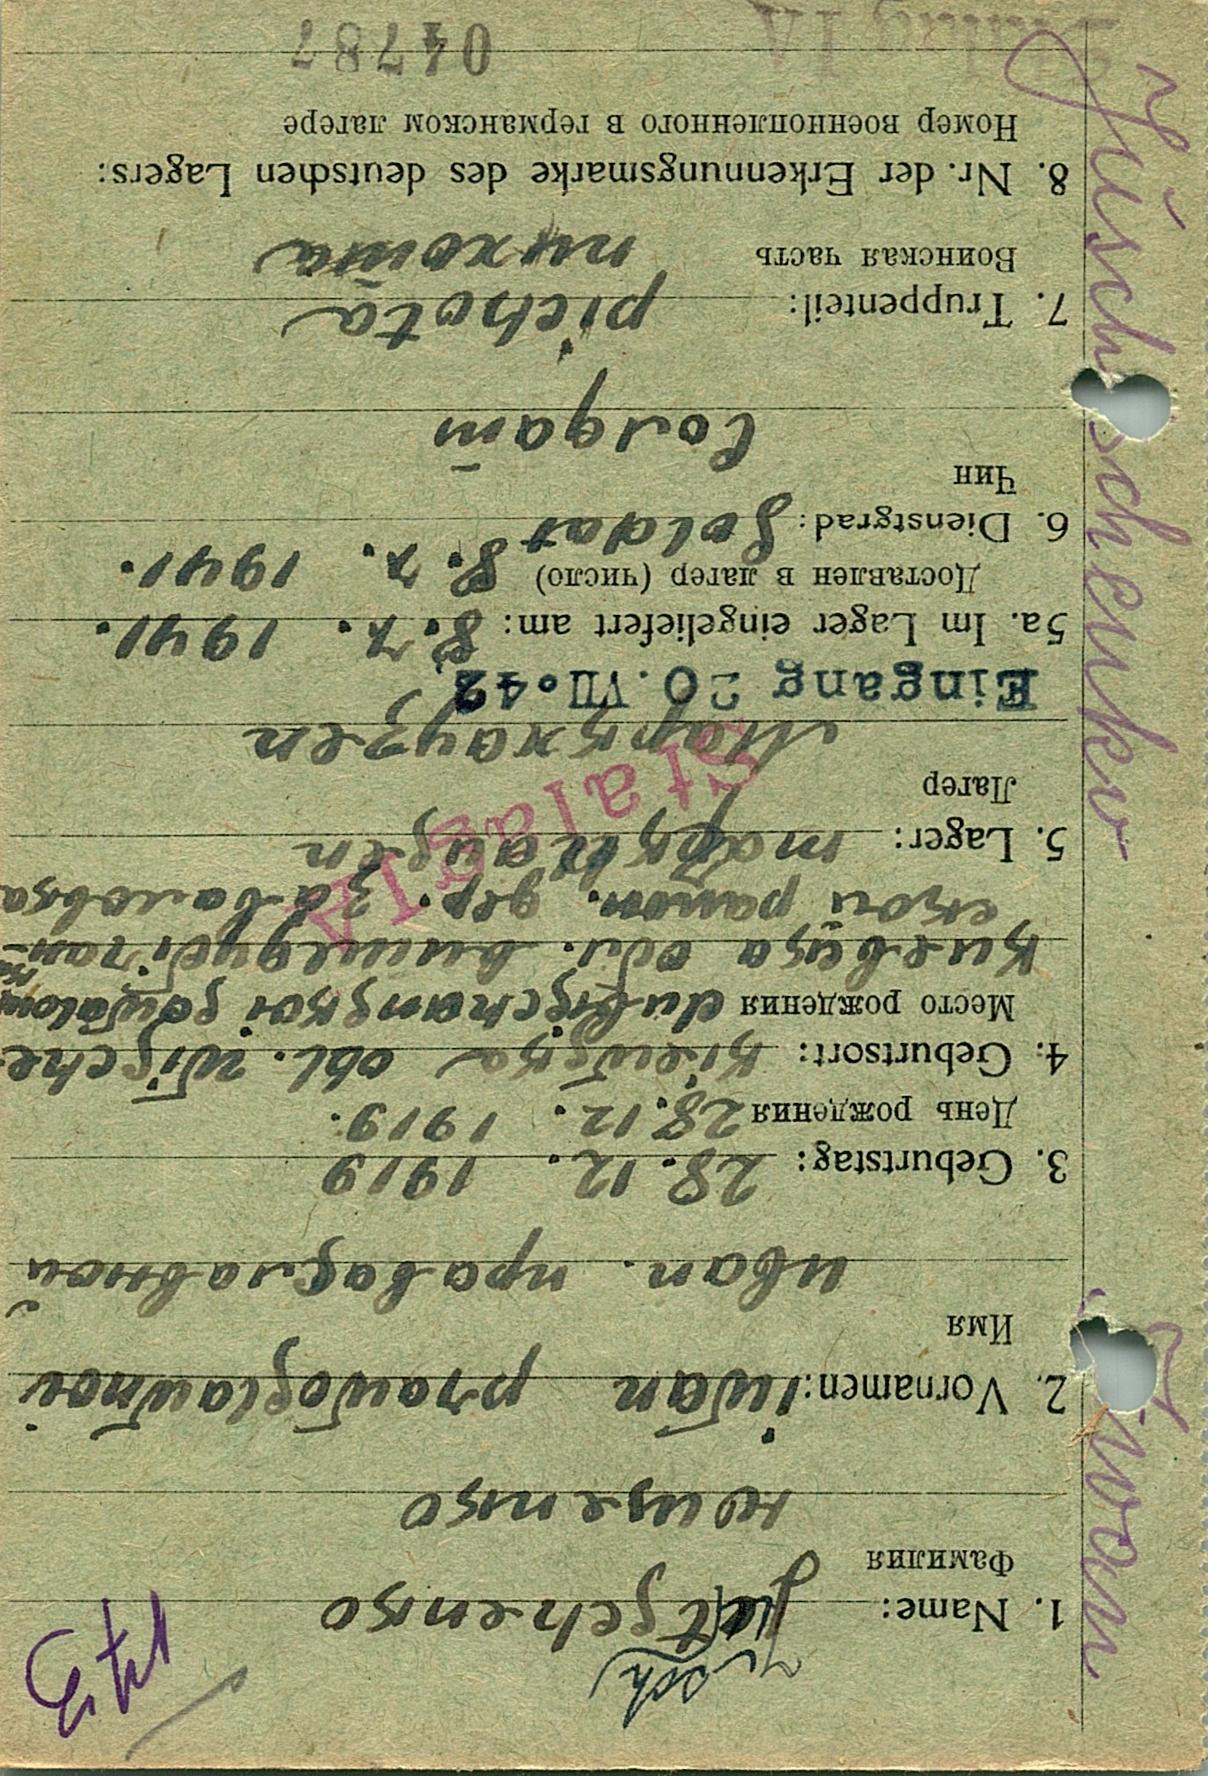 Juschtschenko Iwan
1. Name: Jutschenko
Фамилия
ющенко
2. Vornamen: iwan prawoslawnoi
Имя
иван. православной
3. Geburtstag: 28. 12. 1919
День рождения 28. 12. 1919.
4. Geburtsort: kiewska obl.
Место рождения
киевска обл.
район. дер.
5. Lager:
Лагер
Stalag IA
Eingang 20. VII. 42
5a. Im Lager eingeliefert am: 8. 7. 1941.
Доставлен в лагер (число) 8. 7. 1941.
6. Dienstgrad: Soldat
Чин
Солдат
7. Truppenteil: pichota
Воинская часть пихота
8. Nr. der Erkennungsmarke des deutschen Lagers:
Номер военнопленного в германском лагере
Stalag IA 04787